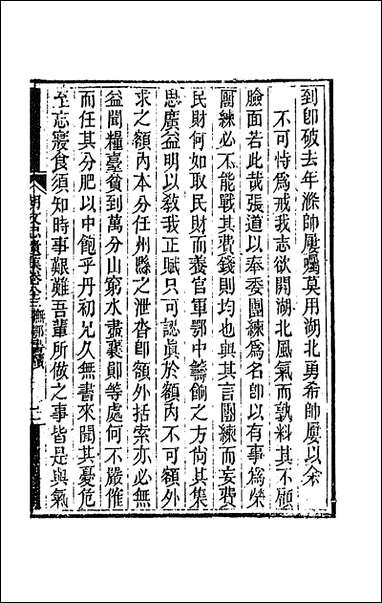 到卽破去年滌帥屢囑莫用湖北勇希帥屢以余
不可恃爲戒我志欲開湖北風氣而孰料其不顧
臉面若此哉張道以奉委團練爲名卽以有事爲榮
團練必不能戰其費錢則均也與其言團練而妄費
民財何如取民財而養官軍鄂中籌餉之方尙其集
思廣益明以敎我正賦只可認眞於額內不可額外
求之額內本分任州縣之泄沓卽額外括索亦必無
益聞糧臺貧到萬分山窮水盡襄鄖等處何不嚴催
而任其分肥以中飽乎丹初兄久無書來聞其憂危
至忘寢食須知時事艱難吾輩所做之事皆是與氣
胡文忠公遺集卷
撫鄂書牘